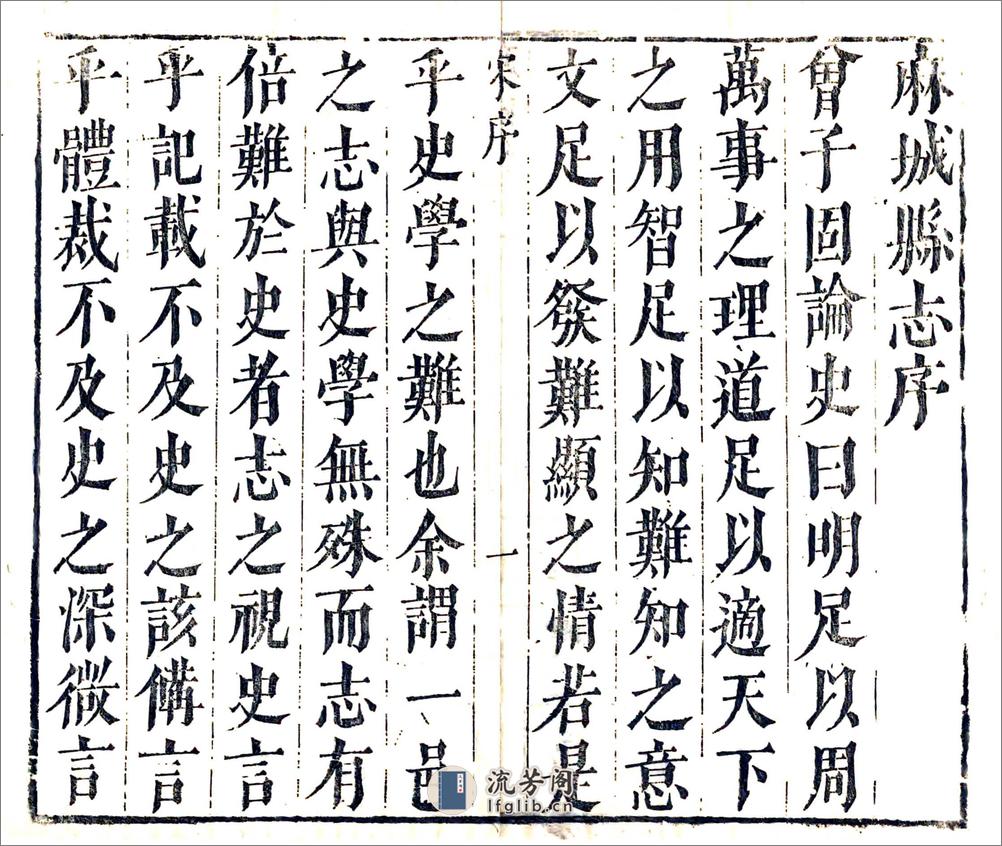 麻城縣志序
曾子固論史曰明足以周
萬事之理道足以適天下
之用智足以知難知之意
文足以發難顯之情若是
宋序
一
乎史學之難也余謂一邑
之志與史學無殊而志有
倍難於史者志之視史言
乎記載不及史之該備言
乎體裁不及史之深微言
流芳阁
lfglib.cn